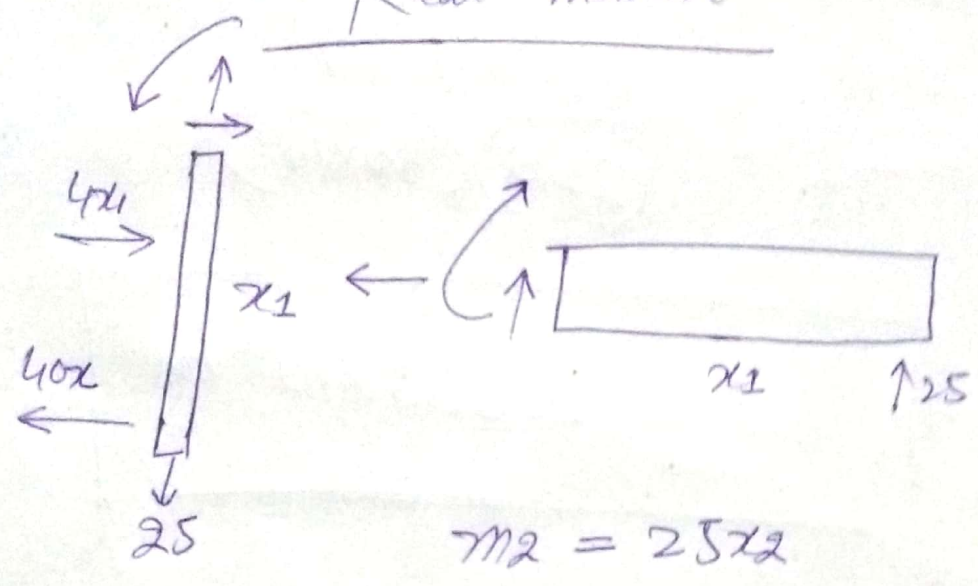 4x1
x1
40x
x1
↑25
25
m2 = 25x2